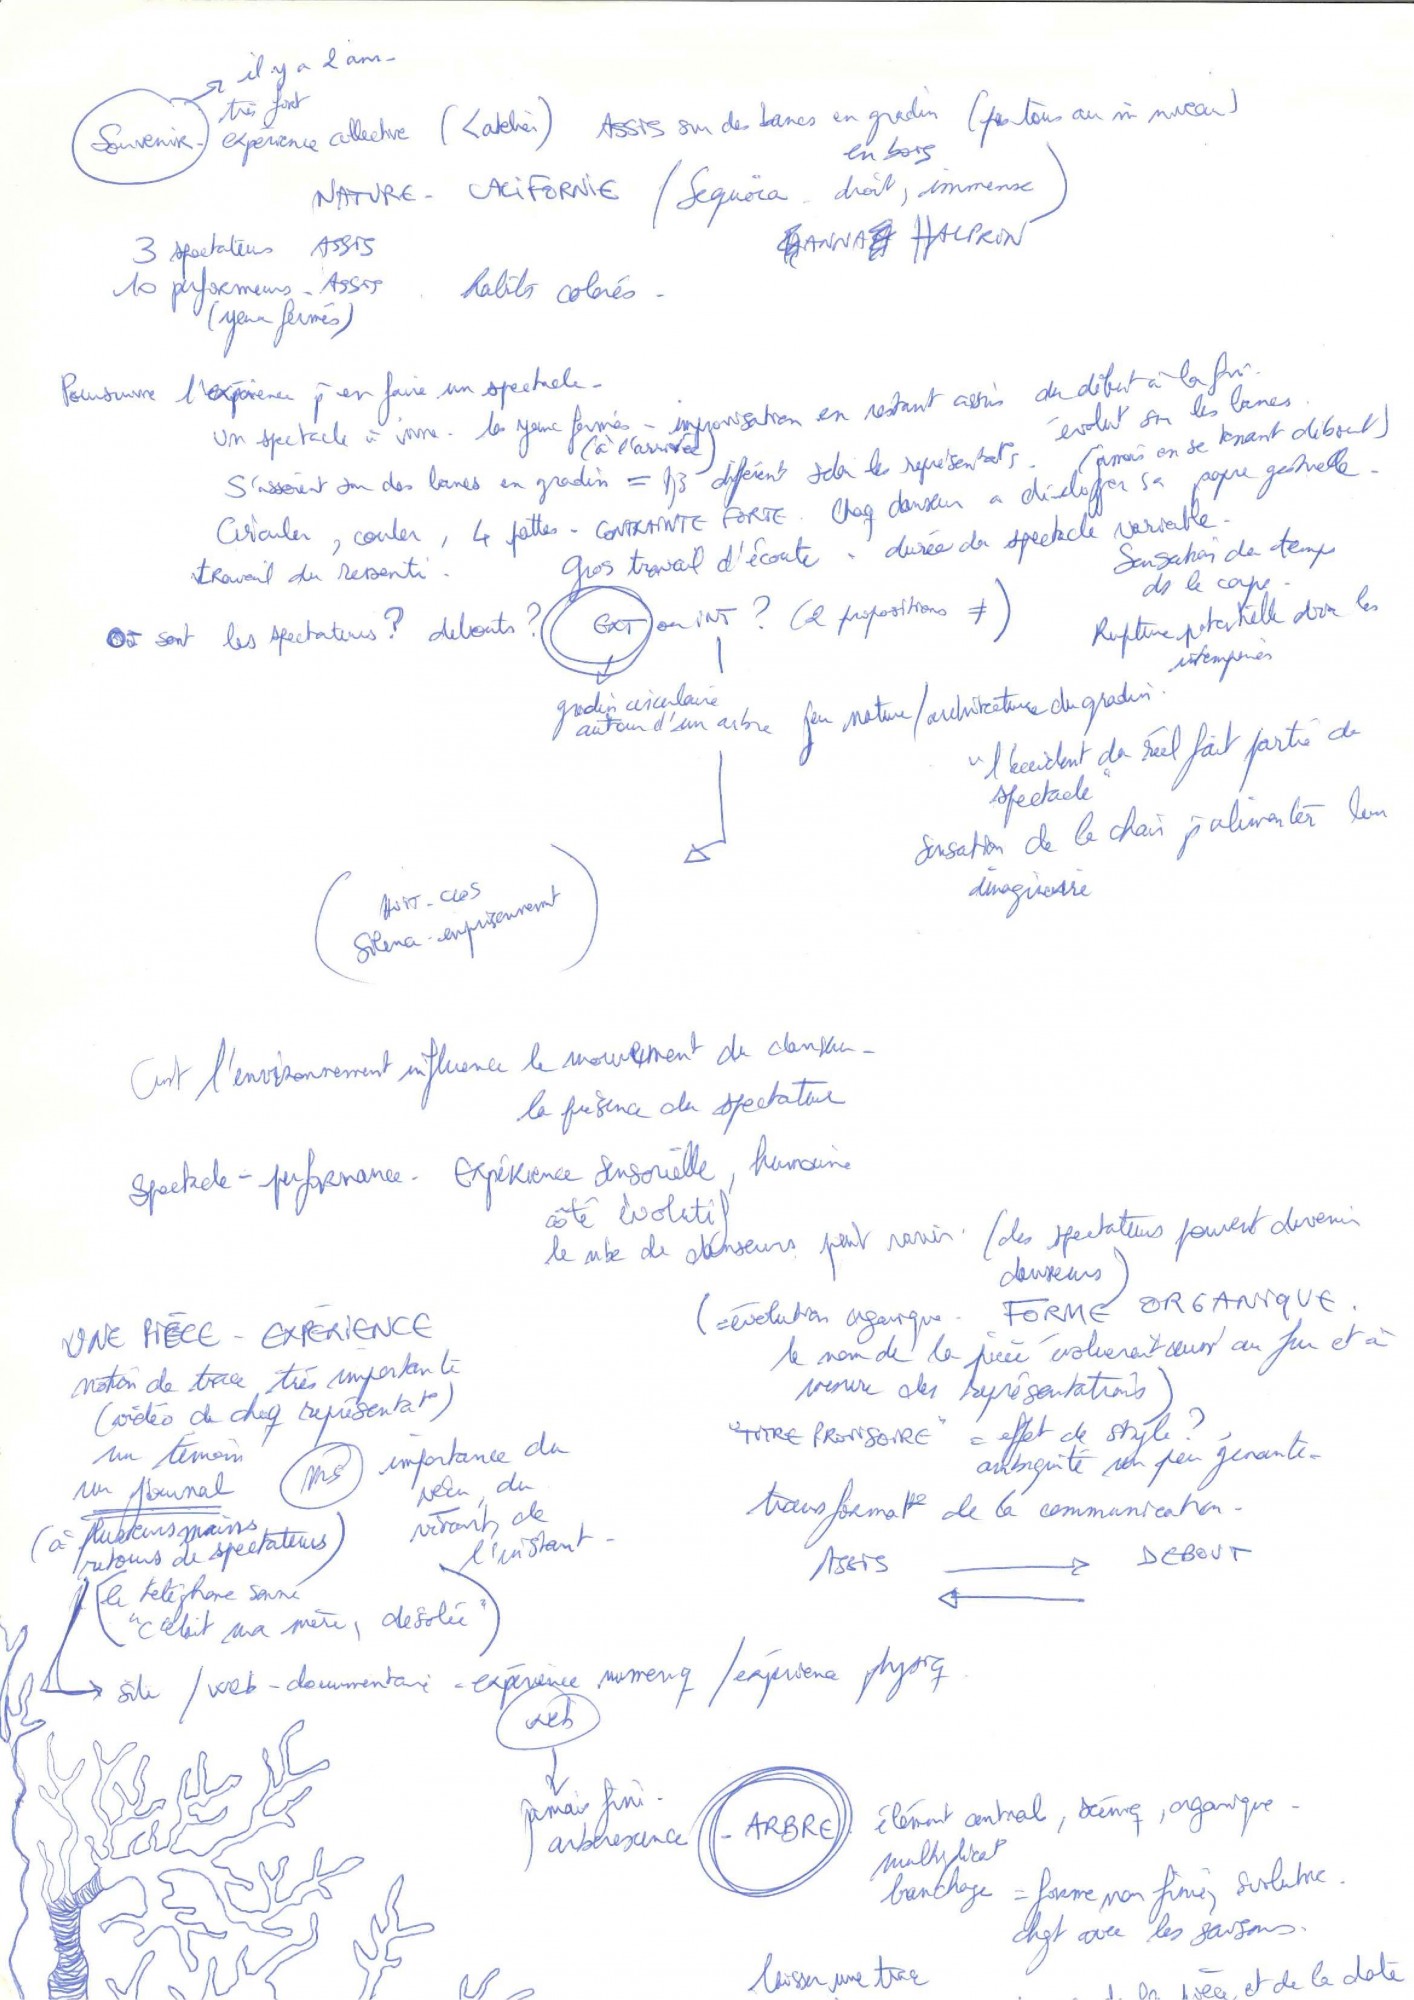 il y a 2 ans -
très fort
Souvenir - expérience collective (atelier) ASSIS sur des bancs en gradin (pas tous au m niveau)
en bois
NATURE - CALIFORNIE (Sequoïa droit, immense)
ANNA HALPRIN
3 spectateurs ASSIS
10 performeurs - ASSIS habits colorés -
(yeux fermés)
Poursuivre l'expérience p en faire un spectacle -
un spectacle à vivre - les yeux fermés - improvisation en restant assis du début à la fin -
(à l'arrivée) évoluent sur les bancs.
S'assoient sur des bancs en gradin = différent selon les représentats. (jamais en se tenant debout)
Circuler, couler, 4 pattes - CONTRAINTE FORTE. Chaq danseur a développer sa propre gestuelle -
travail du ressenti. Gros travail d'écoute - durée du spectacle variable -
Sensation du temps
ds le corps -
Où sont les spectateurs ? debouts ? EXT ou INT ? (2 propositions ≠)
Rupture potentielle avec les
intempéries
gradin circulaire
autour d'un arbre jeu nature/architecture du gradin.
"l'accident du réel fait partie du
spectacle"
sensation de la chair p alimenter leur
imaginaire
(HUIT-CLOS
Silence - emprisonnement)
Cmt l'environnement influence le mouvement du danseur -
la présence du spectateur
Spectacle - performance - Expérience sensorielle, humaine
côté évolutif
le nbe de danseurs peut varier. (des spectateurs peuvent devenir
danseurs)
(= évolution organique - FORME ORGANIQUE.
le nom de la pièce évoluerait aussi au fur et à
mesure des représentations)
"TITRE PROVISOIRE" = effet de style ?
ambiguité un peu gênante -
transformat° de la communication -
ASSIS DEBOUT
UNE PIÈCE - EXPÉRIENCE
notion de trace très importante
(vidéo de chaq représentat°)
un témoin
un journal
(à plusieurs mains
retours de spectateurs)
importance du
vécu, du
vivant, de
l'instant -
(le téléphone sonne
"c'était ma mère, désolée")
site / web-documentaire - expérience numériq / expérience physiq
web
jamais fini -
arborescence - ARBRE élément central, scéniq, organique -
multiplicat
branchage = forme non finie, évolutive.
chgt avec les saisons.
laisser une trace
de la pièce et de la date